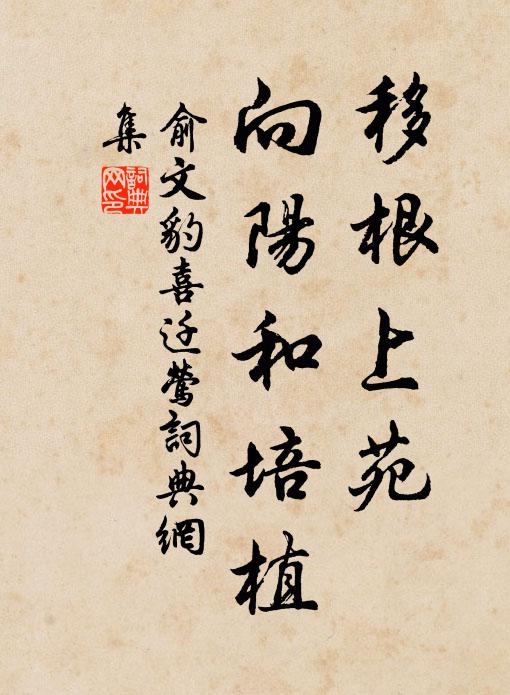 移根上苑
向陽和培植
俞文豹喜迁鶯詞典網
集
詞典網印